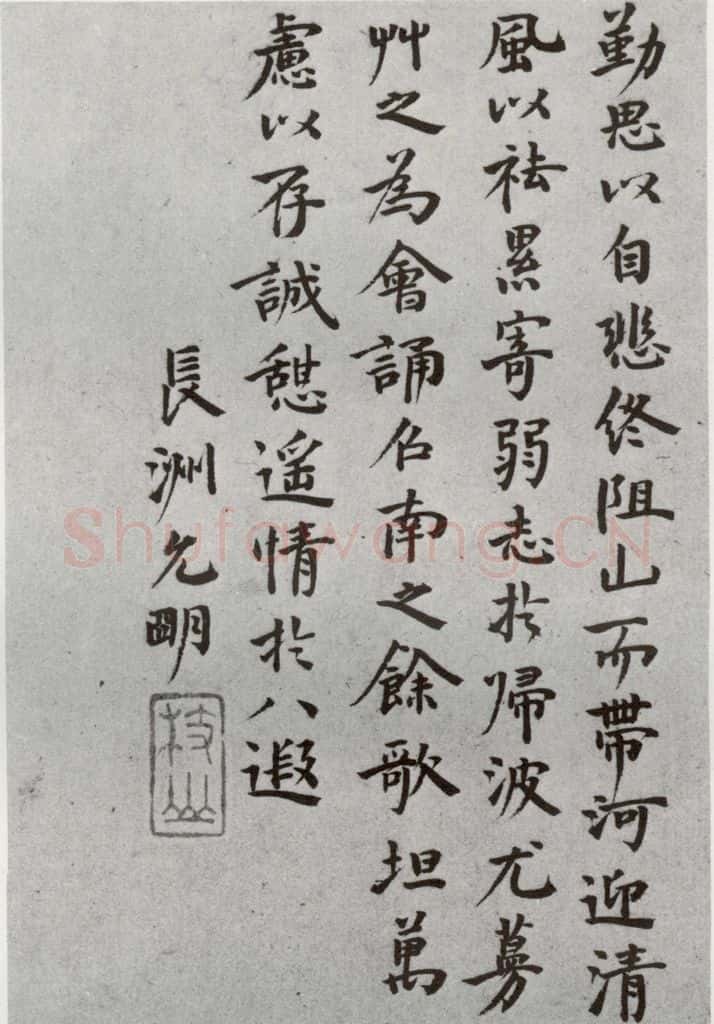 勤思以自悲終阻山而帶河迎清
風以祛累寄弱志於歸波尤蔓
艸之為會誦召南之餘歌坦萬
慮以存誠憩遥情於八遐
長洲允明
枝山
Shufawang.CN